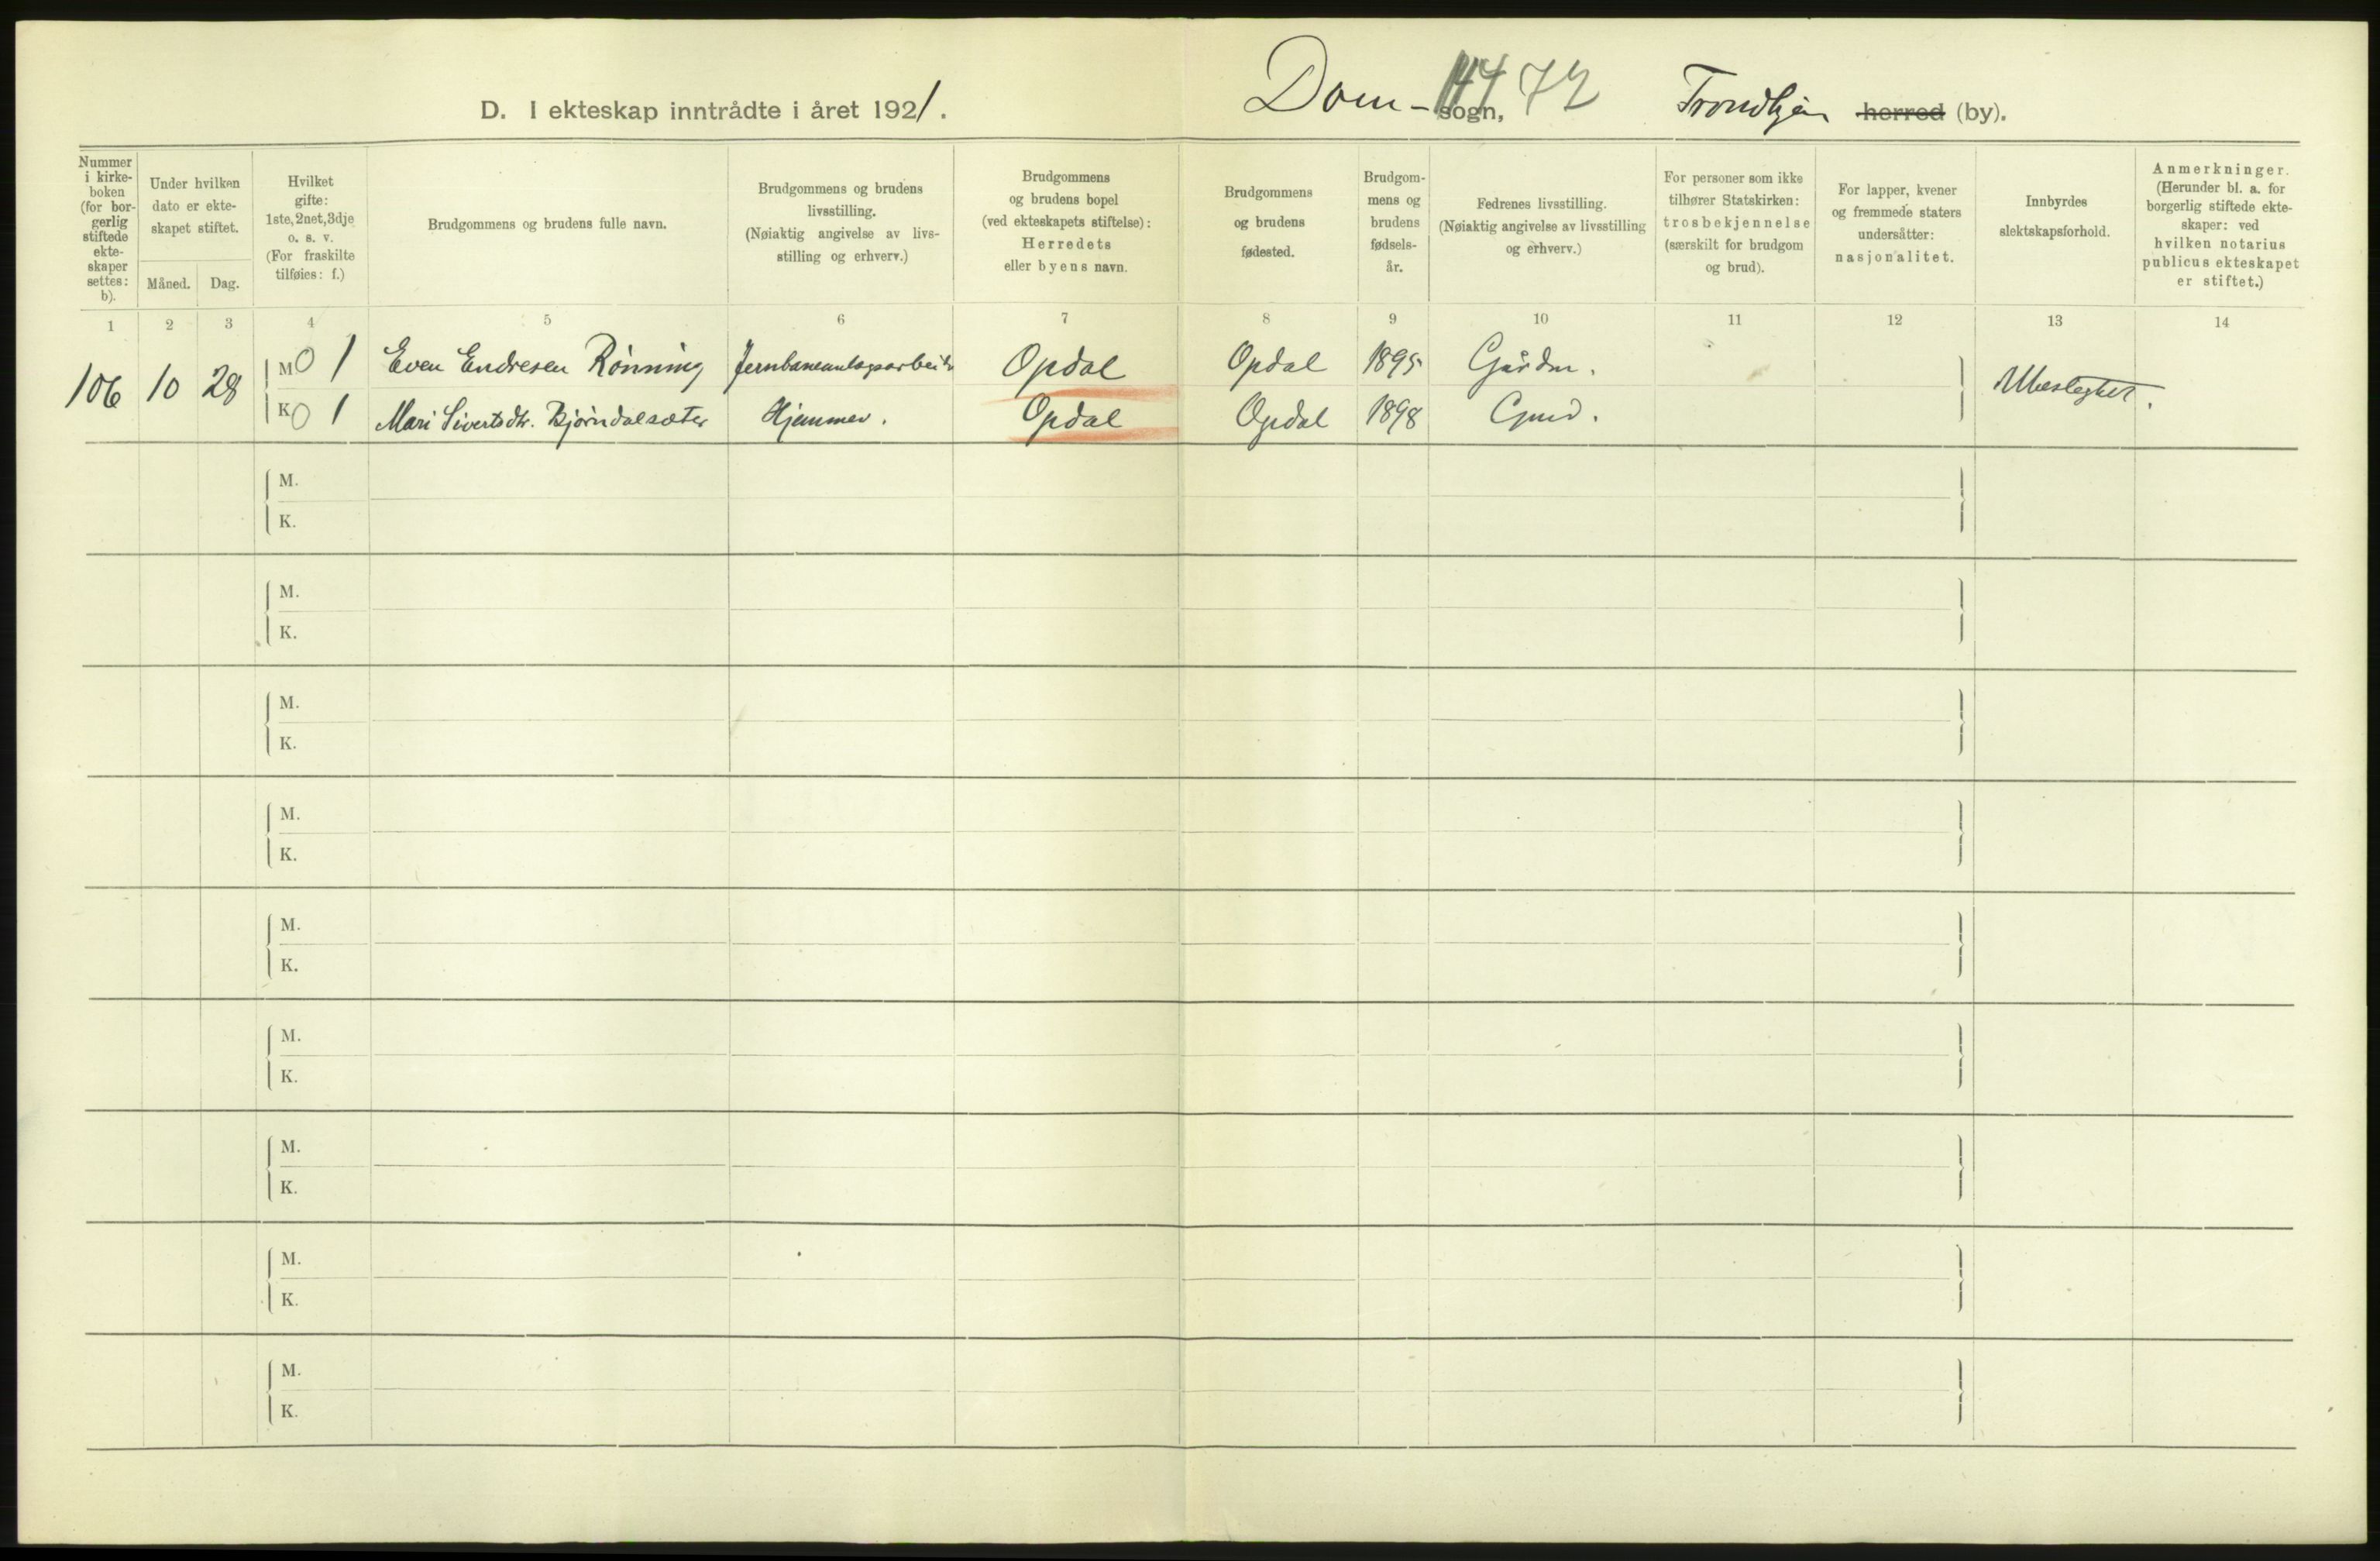 D. I ekteskap inntrådte i året 1921.
Dom- sogn, 72 Trondhjem herred (by).
Nummer
i kirke-
boken
(for bor-
gerlig
stiftede
ekte-
skaper
settes:
b).
Under hvilken
dato er ekte-
skapet stiftet.
Måned. Dag.
Hvilket
gifte:
1ste, 2net, 3dje
o. s. v.
(For fraskilte
tilføies: f.)
Brudgommens og brudens fulle navn.
Brudgommens og brudens
livsstilling.
(Nøiaktig angivelse av livs-
stilling og erhverv.)
Brudgommens
og brudens bopel
(ved ekteskapets stiftelse):
Herredets
eller byens navn.
Brudgommens
og brudens
fødested.
Brudgom-
mens og
brudens
fødsels-
år.
Fedrenes livsstilling.
(Nøiaktig angivelse av livsstilling
og erhverv.)
For personer som ikke
tilhører Statskirken:
trosbekjennelse
(særskilt for brudgom
og brud).
For lapper, kvener
og fremmede staters
undersåtter:
nasjonalitet.
Innbyrdes
slektskapsforhold.
Anmerkninger.
(Herunder bl. a. for
borgerlig stiftede ekte-
skaper: ved
hvilken notarius
publicus ekteskapet
er stiftet.)
1 2 3 4 5 6 7 8 9 10 11 12 13 14
106 10 28 M 0 1 Even Endresen Rønning Jernbaneanlagsarbeider Opdal Opdal 1895 Gårdm. Ubeslegtet.
K 0 1 Mari Sivertsdtr. Bjørndalsæter Hjemmev. Opdal Opdal 1898 Gmd.
M.
K.
M.
K.
M.
K.
M.
K.
M.
K.
M.
K.
M.
K.
M.
K.
M.
K.